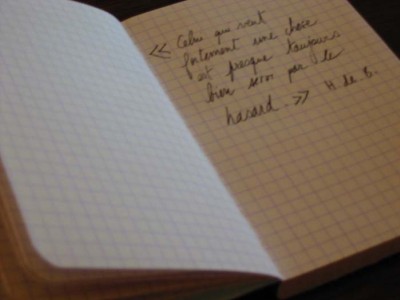 « Celui qui veut
fortement une chose
est presque toujours
bien servi par le
hasard. » H. de B.